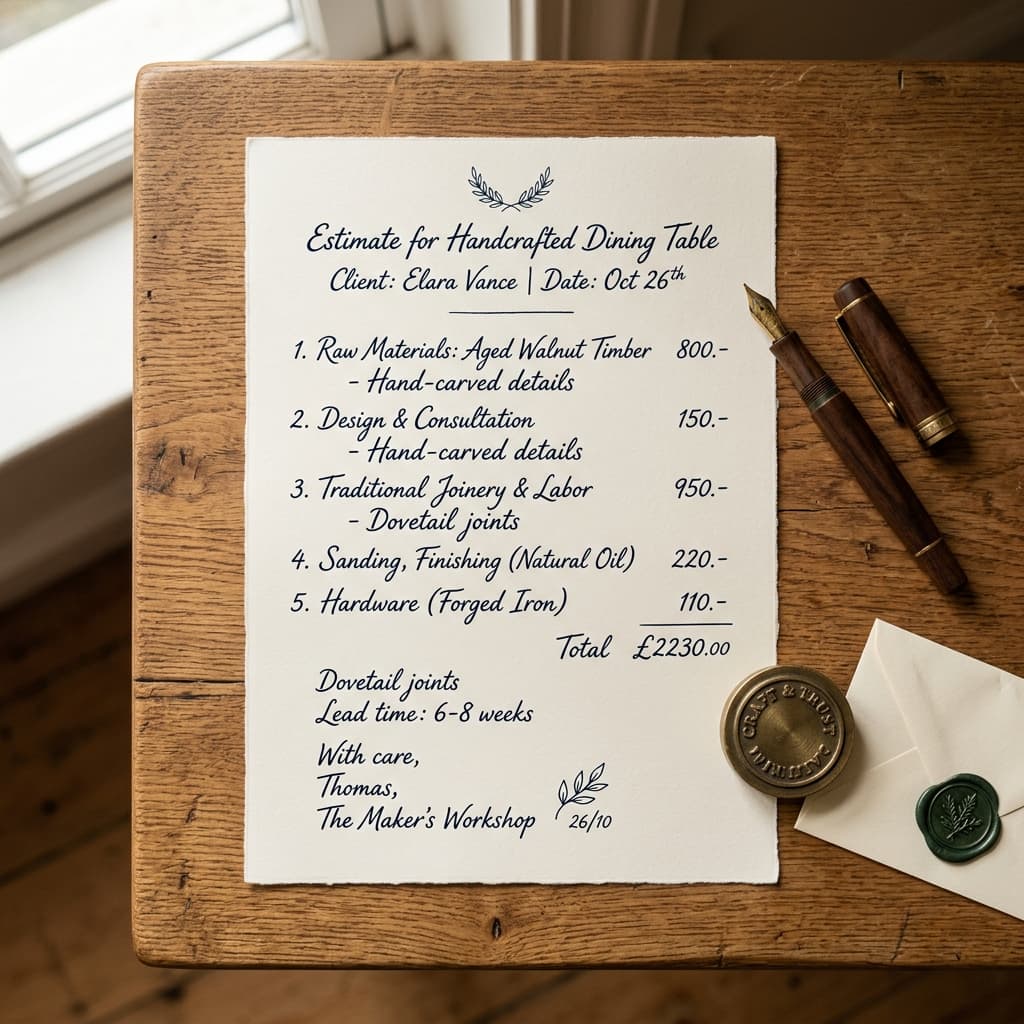 Estimate for Handcrafted Dining Table
Client: Elara Vance | Date: Oct 26th
1. Raw Materials: Aged Walnut Timber 800.-
- Hand-carved details
2. Design & Consultation 150.-
- Hand-carved details
3. Traditional Joinery & Labor 950.-
- Dovetail joints
4. Sanding, Finishing (Natural Oil) 220.-
5. Hardware (Forged Iron) 110.-
Total £2230.00
Dovetail joints
Lead time: 6-8 weeks
With care,
Thomas,
The Maker's Workshop
26/10
CRAFT & TRUST